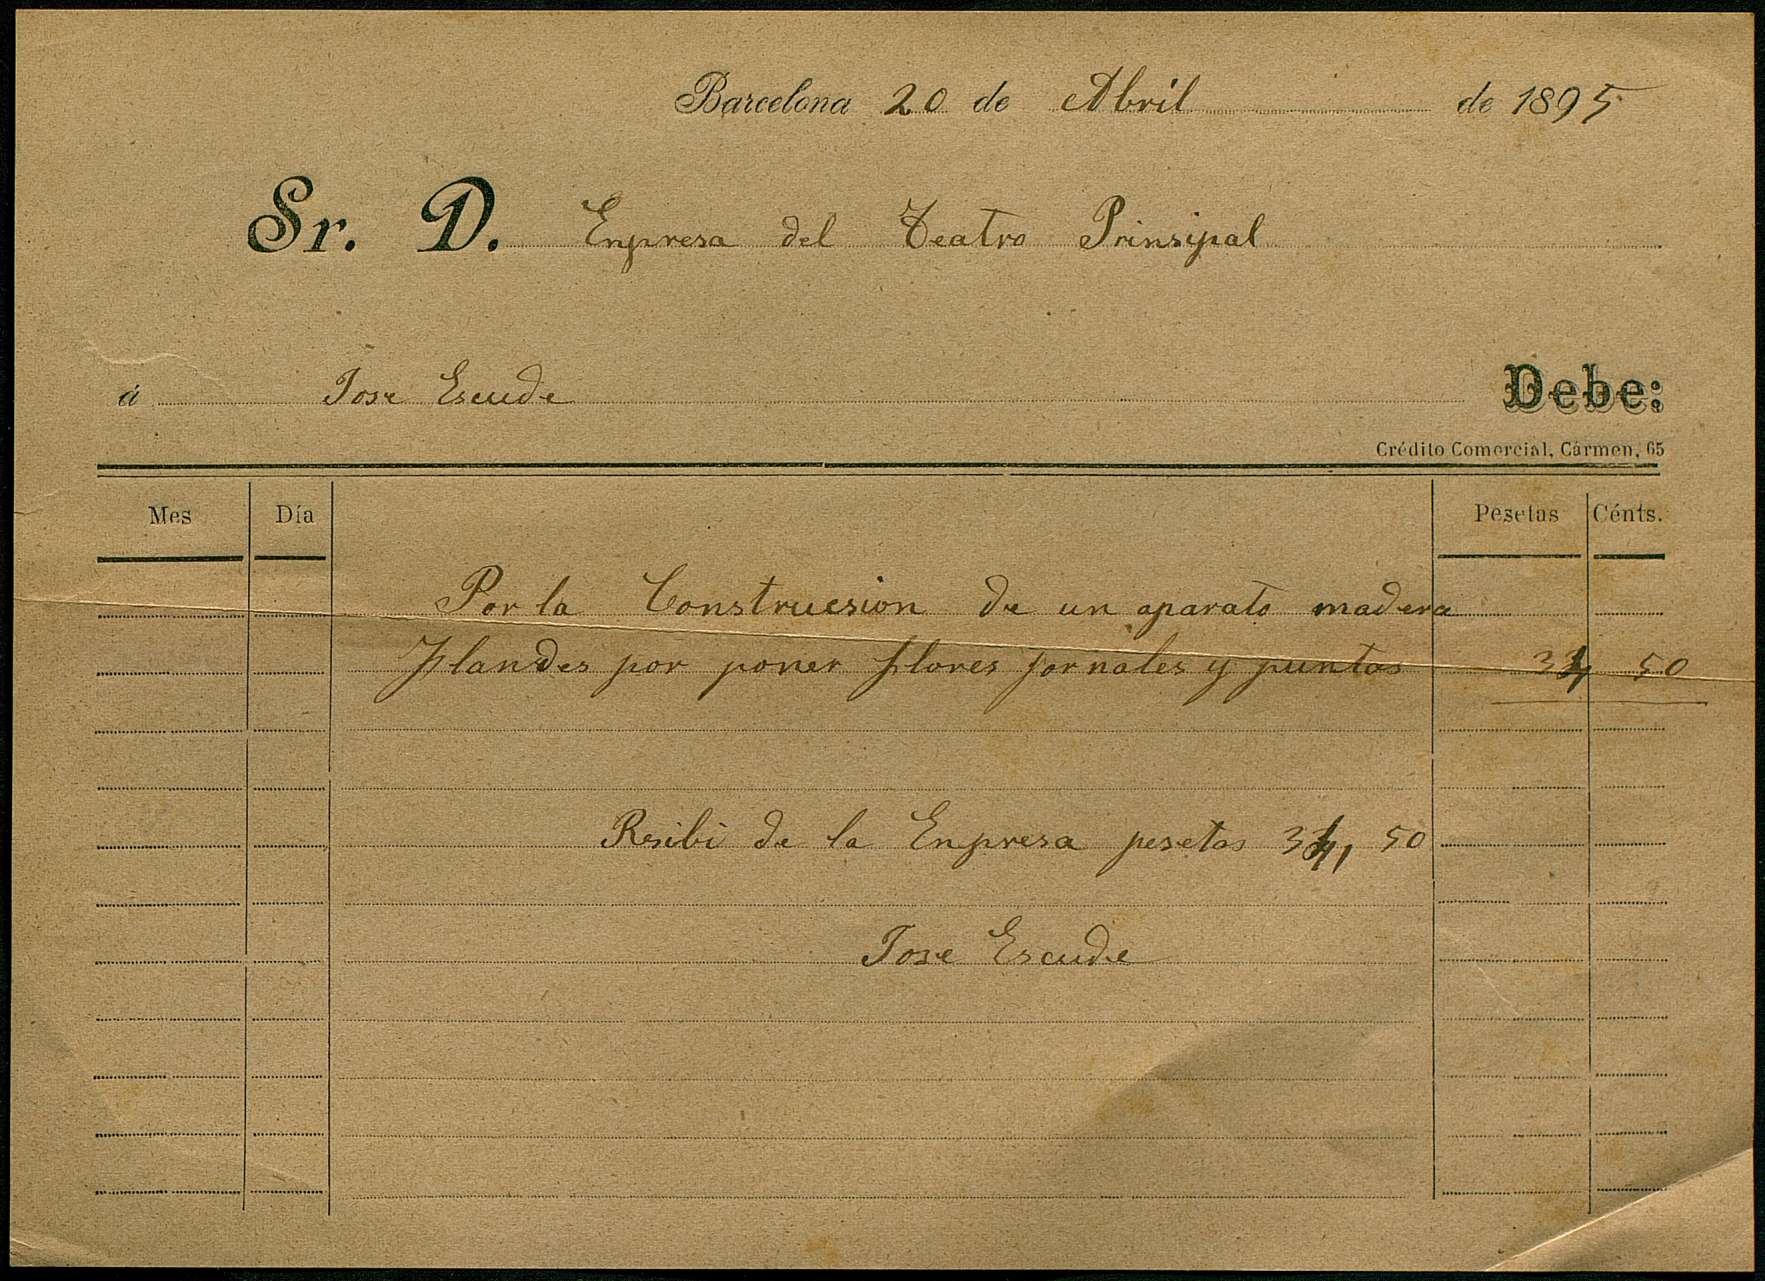 Barcelona 20 de Abril de 1895
Sr. D. Enpresa del Teatro Prinsipal
á Jose Escude Debe:
Crédito Comercial, Cármen, 65
Mes Día Pesetas Cénts.
Por la Construcsion de un aparato madera
Flandes por poner flores jornales y puntas 34 50
Resibi de la Enpresa pesetas 34, 50
Jose Escude